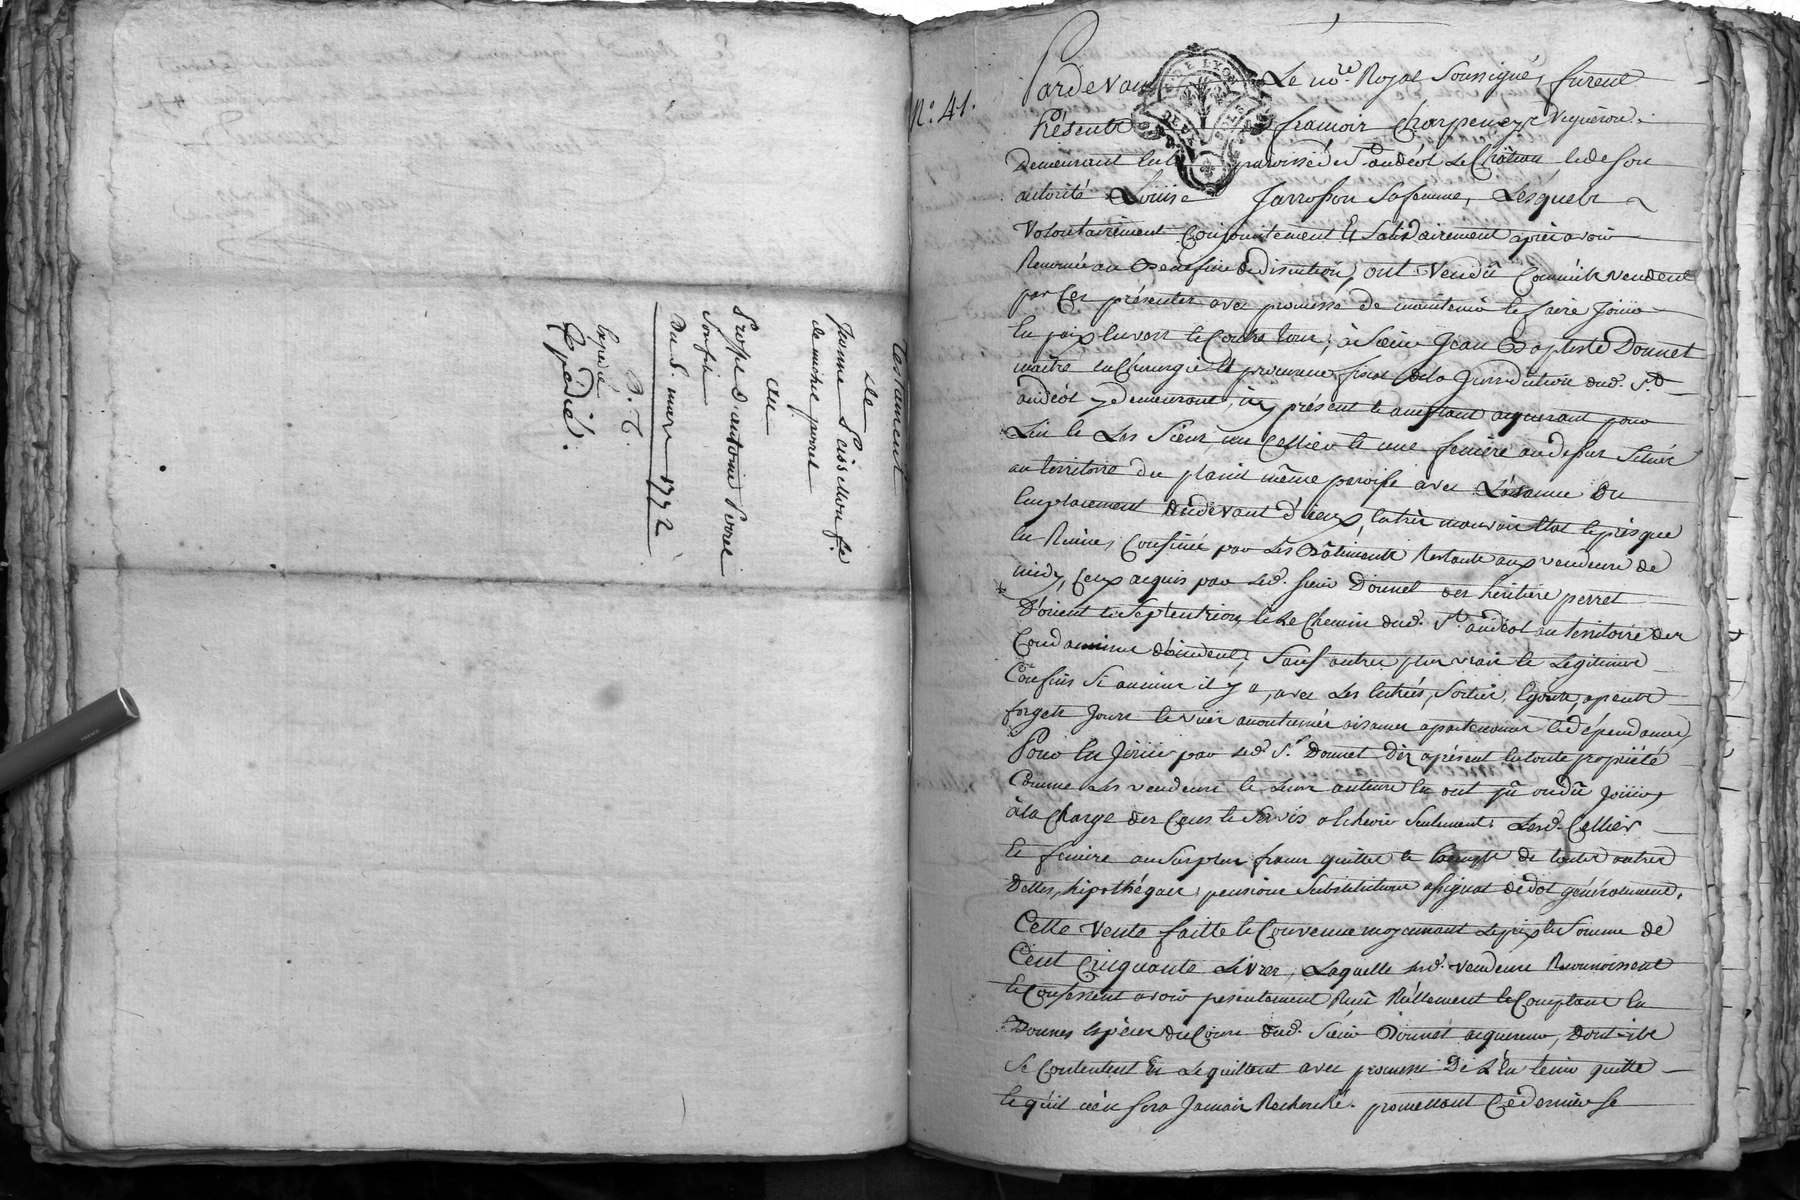 Testament
de
Jeanne Peisselon fe.
de miche perret
au
Proffit d'antoine Perret
son fils
Du 8. mars 1772
B. C.
Expedié
Expedié.
N.o 41.
Pardevant Le no.re Royal Soussigné, furent
Présents françois Charpenay Vigneron
Demeurant en la paroisse de St andéol Le Château et de son
autorité Loüise Jarrosson sa femme, Lesquels
Volontairement Conjointement Et Solidairement après avoir
Renoncé au Bénéfice de discution, ont Vendû Comme ils vendent
par Ces présentes avec promesse de maintenir et faire Joüir
En paix envers et Contre tous, à Sieur Jean Baptiste Donnet
maitre en Chirurgie Et procureur fiscal de la Jurisdiction dud. St
andéol y demeurant, icy présent et acceptant acquerant pour
Lui et Les Siens, un Cellier et une feniere au dessus Situés
au territoire du planil même paroisse avec L'aisance Ou
Emplacement Audevant d'iceux, en très mauvais Etat et presque
En Ruine, Confinés par Les Bâtiments Restants aux vendeurs de
midy, Ceux acquis par led. sieur Donnet des héritiers perret
D'orient et Septentrion, et Le Chemin dud. St andéol au territoire des
Condamines d'occident, Sauf autres plus vrais et Legitimes
Confins Si aucuns il y a, avec Les Entrées, Sorties, Egouts, apents
forgets Jours et vües accoutumés aisances apartenances et dépendances,
Pour En Joüir par led. Sr. Donnet Dez aprésent en toute propriété
Comme Les vendeurs et Leurs auteurs En ont pû ou dû Joüir,
à la Charge des Cens et Servis al chevir Seulement. Lesd. Cellier
Et feniere au Surplus francs quittes et Exempts de toutes autres
Dettes, hipothéques, pensions Substitutions assignat de dot généralement.
Cette Vente faitte et Convenue moyennant Le prix et Somme de
Cent Cinquante Livres, Laquelle lesd. vendeurs Reconnoissent
et Confessent avoir presentement Reçû Réellement et Comptant En
Bonnes Espèces du Cours dud. Sieur Donnet acquereur, Dont ils
Se Contentent Et Le quittent avec promesse De L'En tenir quitte
et qu'il n'en sera Jamais Recherché. promettant Ce dernier Se